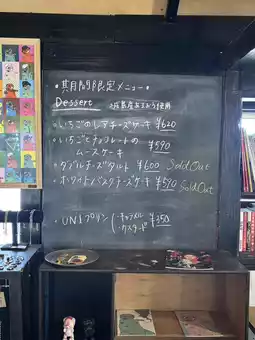 ・期間限定メニュー・
Dessert
・いちごのレアチーズケーキ ¥620
・いちごとチョコレートの
ムースケーキ ¥590
・ダブルチーズタルト ¥600 Sold Out
・ホワイトバスクチーズケーキ ¥590 Sold Out
・UNIプリン (・キャラメル ・カスタード ¥350